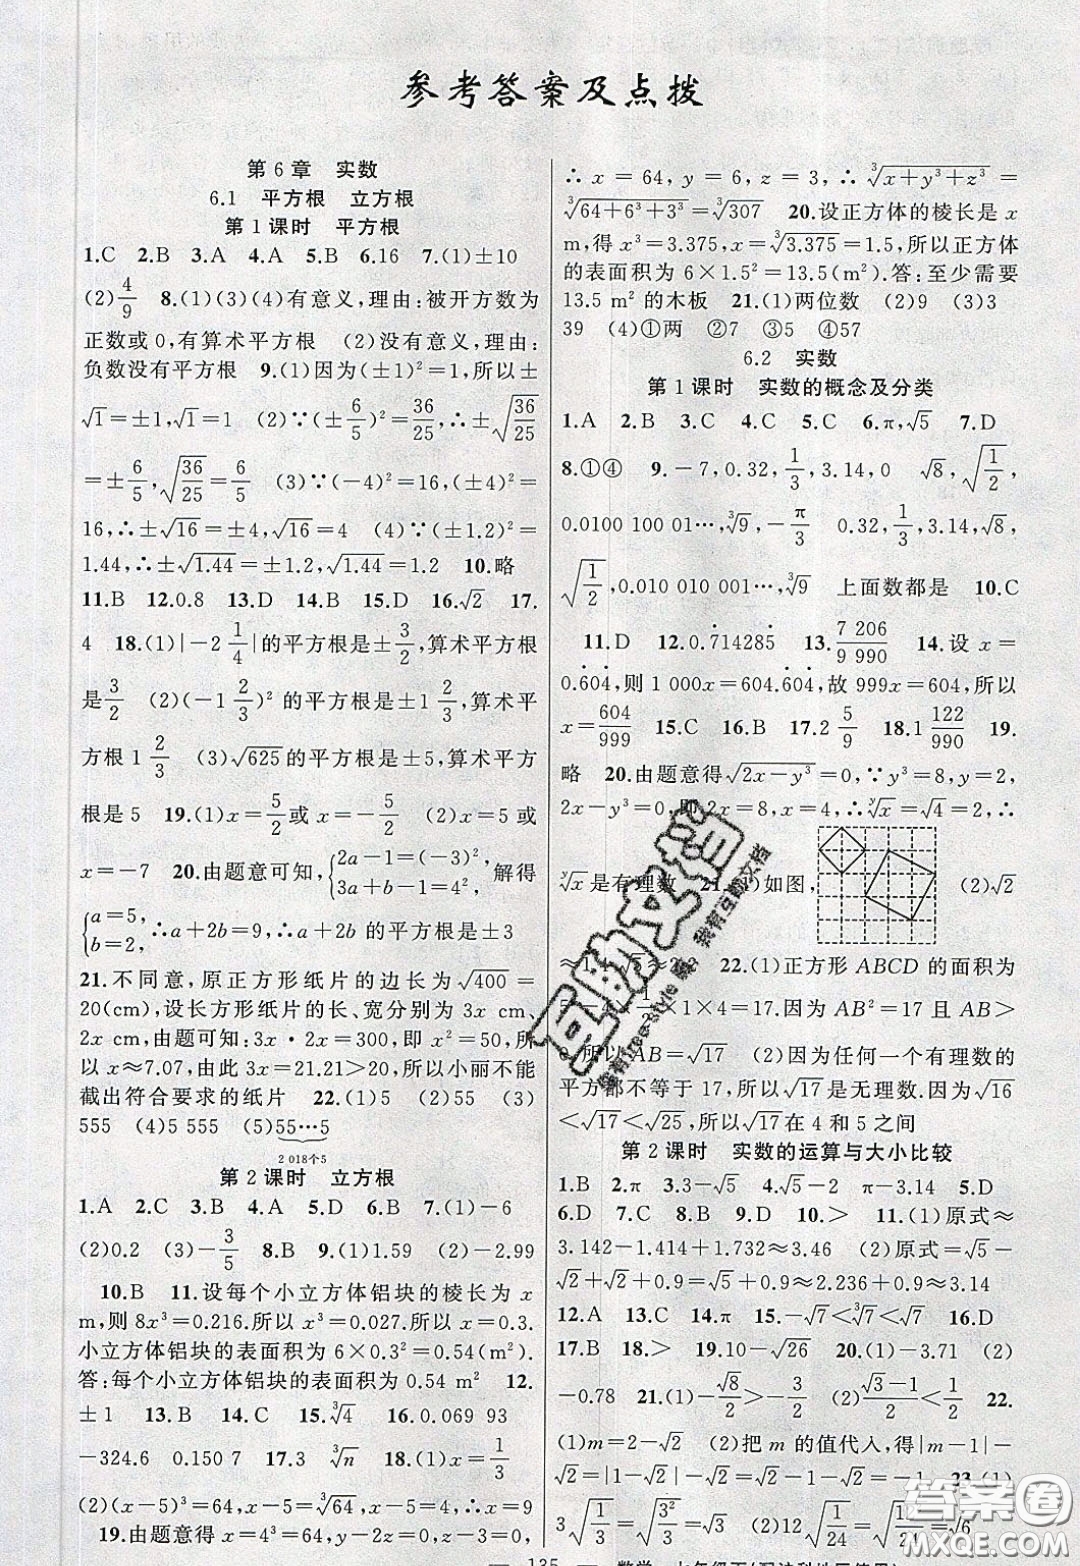 参考答案及点拨
第6章 实数
6.1 平方根 立方根
第1课时 平方根
1.C 2.B 3.A 4.A 5.B 6.16 7.(1)±10
(2)4/9 8.(1)(3)(4)有意义,理由:被开方数为
正数或0,有算术平方根 (2)没有意义,理由:
负数没有平方根 9.(1)因为(±1)²=1,所以±
√1=±1,√1=1 (2)∵(±6/5)²=36/25,∴±√(36/25)
=±6/5,√(36/25)=6/5 (3)∵(-4)²=16,(±4)²=
16,∴±√16=±4,√16=4 (4)∵(±1.2)²=
1.44,∴±√1.44=±1.2,√1.44=1.2 10.略
11.B 12.0.8 13.D 14.B 15.D 16.√2 17.
4 18.(1)|-2 1/4|的平方根是±3/2,算术平方根
是3/2 (2)(-1 2/3)²的平方根是±1 2/3,算术平
方根1 2/3 (3)√625的平方根是±5,算术平方
根是5 19.(1)x=5/2或x=-5/2 (2)x=5或
x=-7 20.由题意可知,{2a-1=(-3)², 3a+b-1=4²,解得
{a=5, b=2,∴a+2b=9,∴a+2b的平方根是±3
21.不同意,原正方形纸片的边长为√400=
20(cm),设长方形纸片的长、宽分别为3x cm、
2x cm,由题可知:3x·2x=300,即x²=50,所
以x≈7.07,由此3x=21.21>20,所以小丽不能
截出符合要求的纸片 22.(1)5 (2)55 (3)
555 (4)5 555 (5)55…5
2 018个5
第2课时 立方根
1.A 2.C 3.B 4.A 5.D 6.B 7.(1)-6
(2)0.2 (3)-3/5 8.B 9.(1)1.59 (2)-2.99
10.B 11.设每个小立方体铝块的棱长为x
m,则8x³=0.216.所以x³=0.027.所以x=0.3.
小立方体铝块的表面积为6×0.3²=0.54(m²).
答:每个小立方体铝块的表面积为0.54 m² 12.
±1 13.B 14.C 15.³√4 16.0.069 93
-324.6 0.150 7 17.3 ³√n 18.(1)x=1/3
(2)(x-5)³=64,x-5=³√64,x-5=4,∴x=9
19.由题意得x=4³=64,y-2z=0,z-3=0,
∴x=64,y=6,z=3,∴³√(x+y³+z³)=
³√(64+6³+3³)=³√307 20.设正方体的棱长是x
m,得x³=3.375,x=³√3.375=1.5,所以正方体
的表面积为6×1.5²=13.5(m²).答:至少需要
13.5 m²的木板 21.(1)两位数 (2)9 (3)3
39 (4)①两 ②7 ③5 ④57
6.2 实数
第1课时 实数的概念及分类
1.A 2.B 3.C 4.C 5.C 6.π,√5 7.D
8.①④ 9.-7,0.32,1/3,3.14,0 √8,√(1/2),
0.0100 100 01…,³√9,-π/3 0.32,1/3,3.14,√8,
√(1/2),0.010 010 001…,³√9 上面数都是 10.C
11.D 12.0.7̇14285̇ 13.7 206/9 990 14.设x=
0.6̇04̇,则1 000x=604.6̇04̇,故999x=604,所以
x=604/999 15.C 16.B 17.2 5/9 18.1 122/990 19.
略 20.由题意得√(2x-y³)=0,∵y³=8,y=2,
2x-y³=0,即2x=8,x=4,∴ʸ√x=√4=2,∴
ʸ√x是有理数 1)如图, (2)√2
22.(1)正方形ABCD的面积为
×1×4=17.因为AB²=17且AB>
所以AB=√17 (2)因为任何一个有理数的
平方都不等于17,所以√17是无理数.因为√16
<√17<√25,所以√17在4和5之间
第2课时 实数的运算与大小比较
1.B 2.π 3.3-√5 4.√5-2 π-3.14 5.D
6.D 7.C 8.B 9.D 10.> 11.(1)原式≈
3.142-1.414+1.732≈3.46 (2)原式=√5-
√2+√2+0.9=√5+0.9≈2.236+0.9≈3.14
12.A 13.C 14.π 15.-√7<³√7<√7 16.D
17.B 18.> 19.10-√26 20.(1)-3.71 (2)
-0.78 21.(1)-√8/2>-3/2 (2)(√3-1)/2<√2/2 22.
(1)m=2-√2 (2)把m的值代入,得|m-1|-
√2=|1-√2|-√2=√2-1-√2=-1 23.(1)
3√(1/3)=√(3²/3)=√3 (2)12√(1/24)=√(12²/24)=√6
— 135 —
互助文档
我有互助文档
答案圈